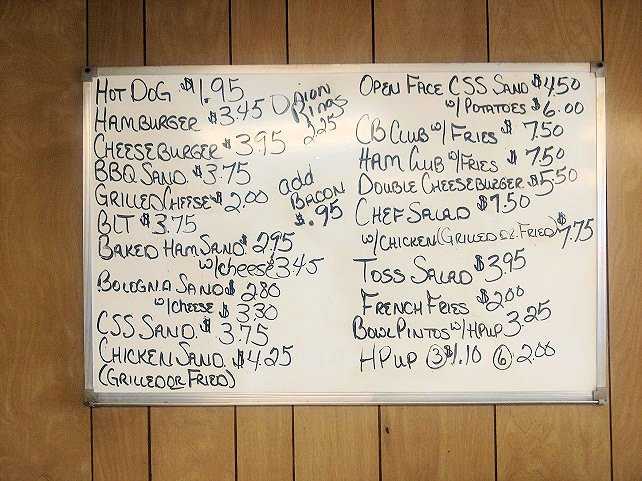 HOT DOG $1.95
HAMBURGER $3.45
CHEESEBURGER $3.95
BBQ SAND. $3.75
GRILLED CHEESE $2.00
BLT $3.75
BAKED HAM SAND. $2.95
w/cheese $3.45
BOLOGNA SAND $2.80
w/CHEESE $3.30
CSS SAND. $3.75
CHICKEN SAND. $4.25
(GRILLED OR FRIED)
ONION
RINGS
2.25
add
BACON
$.95
OPEN FACE CSS SAND $4.50
w/POTATOES $6.00
CB CLUB w/FRIES $7.50
HAM CLUB w/FRIES $7.50
DOUBLE CHEESEBURGER $5.50
CHEF SALAD $7.50
w/CHICKEN (GRILLED OR FRIED) $7.75
TOSS SALAD $3.95
FRENCH FRIES $2.00
BOWL PINTOS w/HPUP 3.25
HPUP ③ $1.10 ⑥ 2.00